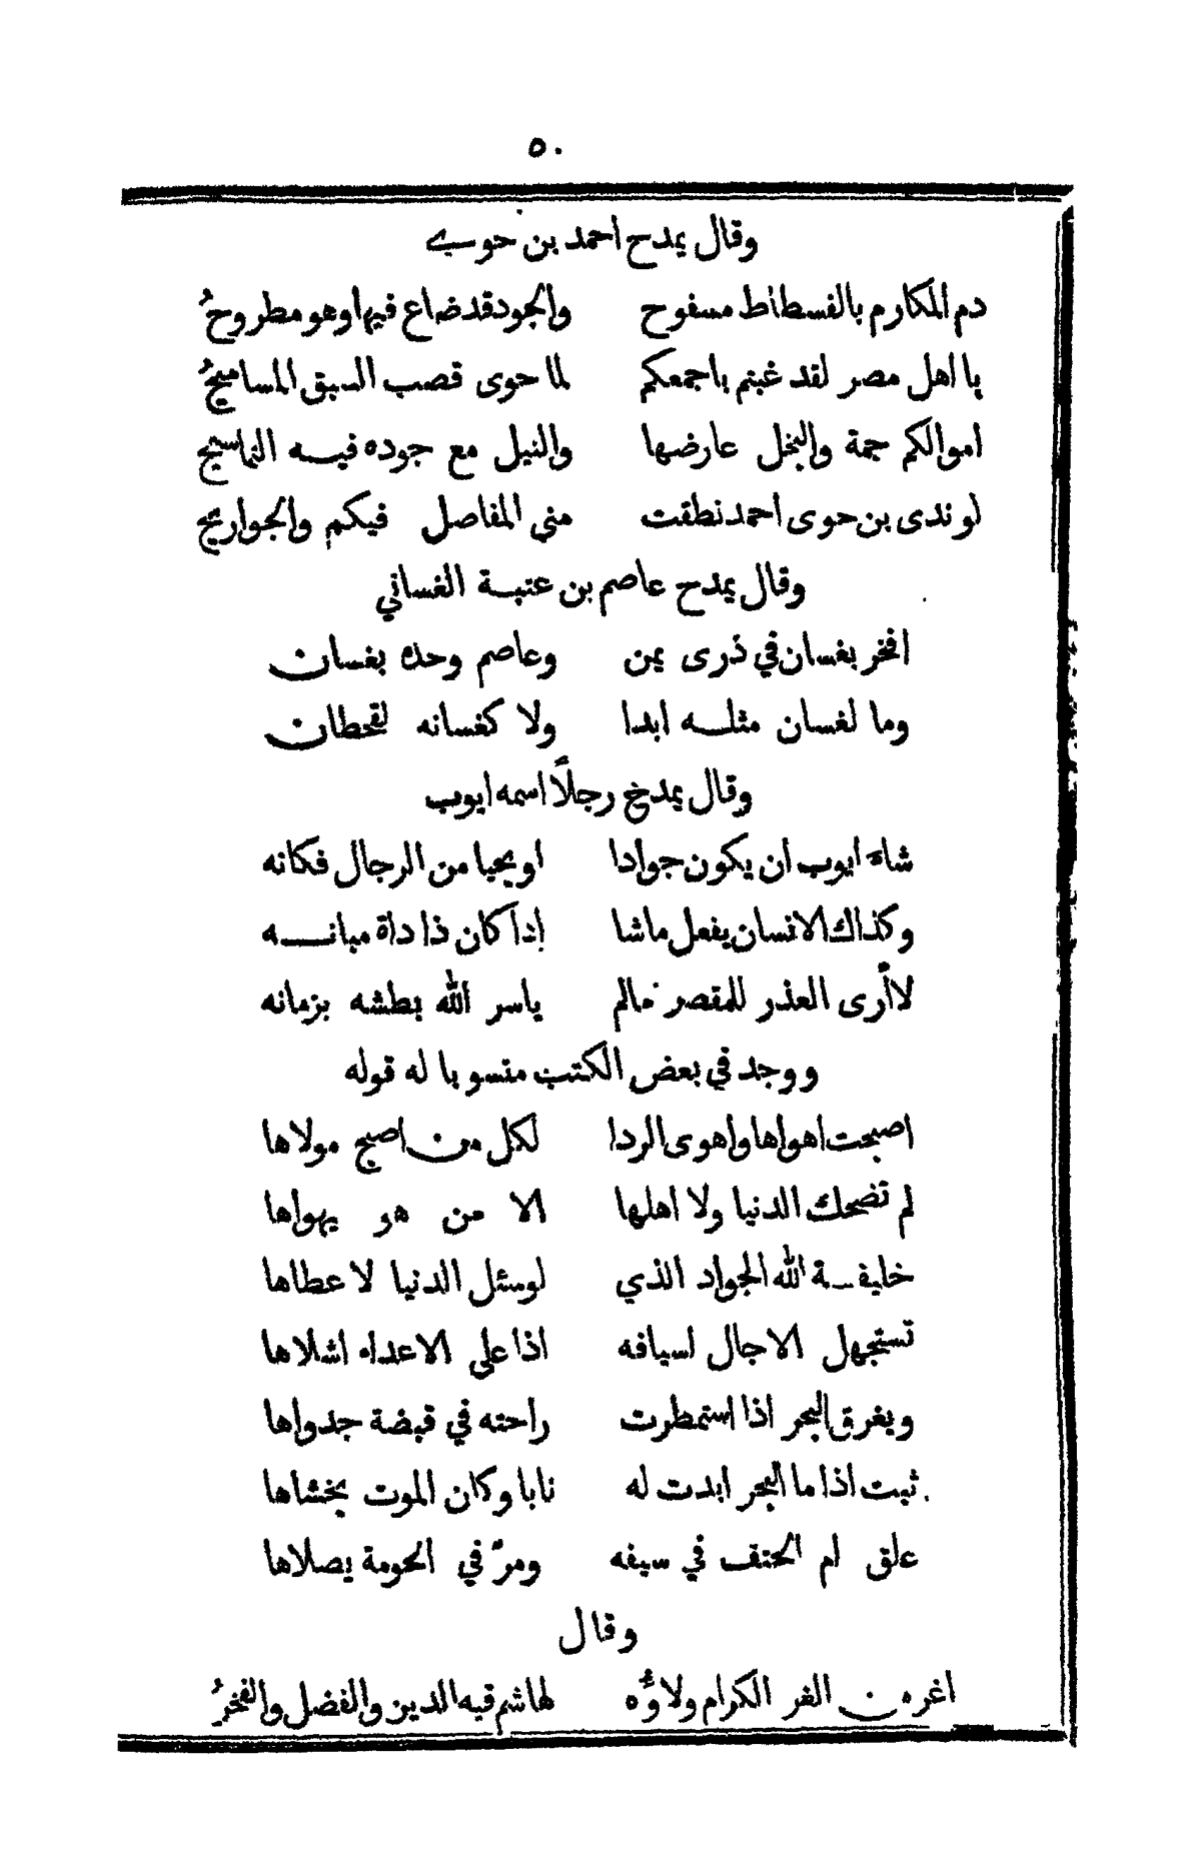 ٥٠
وقال يمدح احمد بن حوسي
دم المكارم بالفسطاط مسفوح والجود قد ضاع فيها وهو مطروحُ
يا اهل مصر لقد غبنتم باجمعكم لما حوى قصب السبق المساميحُ
اموالكم جمة والبخل عارضها والنيل مع جوده فيه التماسيح
لو ندى بن حوى احمد نطقت مني المفاصل فيكم والجواريح
وقال يمدح عاصم بن عتبة الغساني
افخر بغسان في ذرى يمن وعاصم وحده بغسان
وما لغسان مثله ابدا ولا كغسانه لقحطان
وقال يمدخ رجلاً اسمه ايوب
شاة ايوب ان يكون جوادا او يحيا من الرجال فكانه
وكذاك الانسان يفعل ماشا إذا كان ذا داة مبانه
لا أرى العذر للمقصر مالم ياسر الله بطشه بزمانه
ووجد في بعض الكتب منسوبا له قوله
اصبحت اهواها واهوى الردا لكل من اصبح مولاها
لم تضحك الدنيا ولا اهلها الا من هر يهواها
خليفة الله الجواد الذي لوسئل الدنيا لاعطاها
تستجهل الاجال اسيافه اذا على الاعداء اشلاها
ويغرق البحر اذا استمطرت راحته في قبضة جدواها
ثبت اذا ما البحر ابدت له نابا وكان الموت يخشاها
علق ام الحتف في سيفه ومرّ في الحومة يصلاها
وقال
اغر من الغر الكرام ولاؤُه لهاشم فيه الدين والفضل والفخرُ